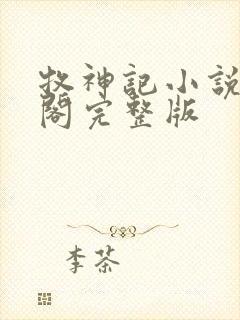 牧神記小說
閣完整版
李茶